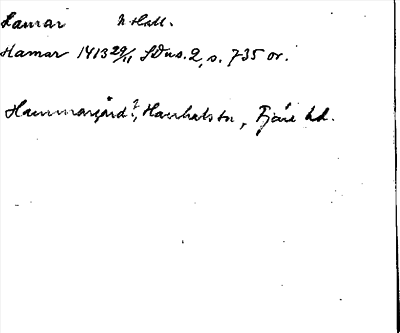 Hamar N Hall.
Hamar 1413 29/11 SDns. 2, s. 735 or.
Hammargård?, Hanhals sn, Fjäre hd.